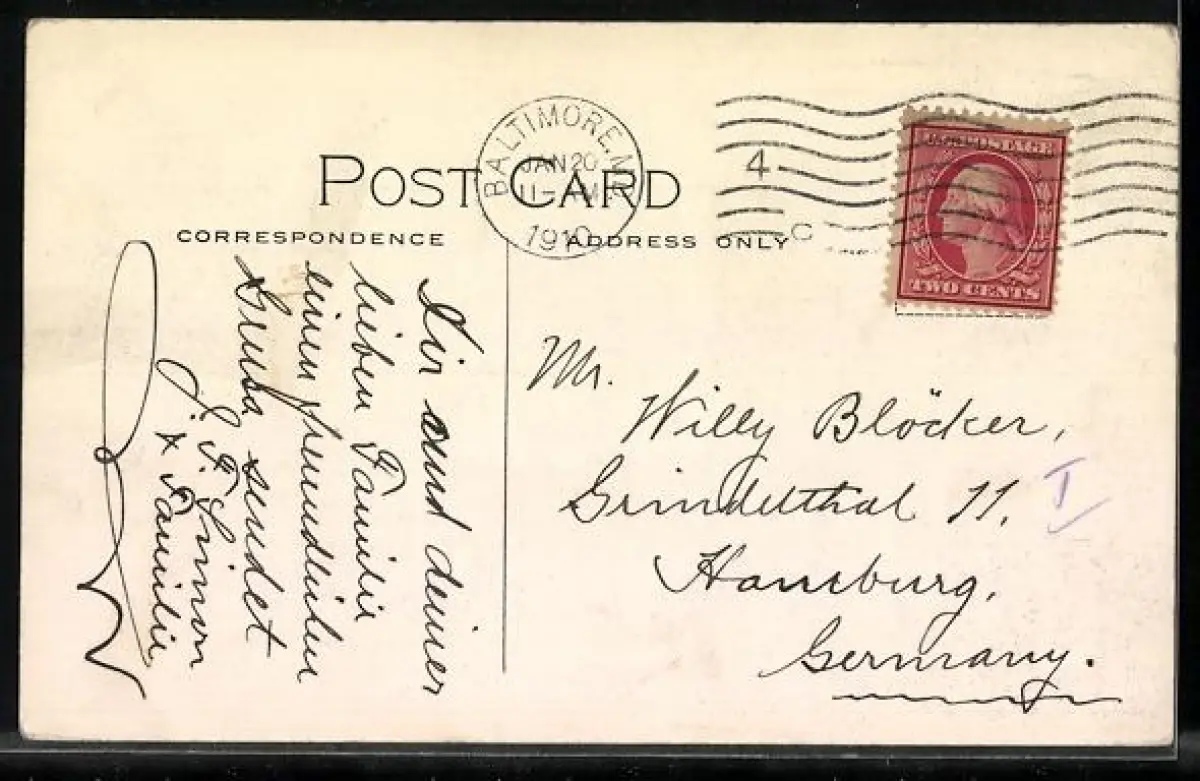 POST CARD
CORRESPONDENCE
ADDRESS ONLY
BALTIMORE, MD.
JAN 20
11- AM
1910
4
C
U.S. POSTAGE
TWO CENTS
Dir und deiner
lieben Familie
einen freundlichen
Gruss, sendet
J. F. Simon
+ Familie
Mr.
Willy Blöcker,
Grindelthal 11.
I
Hamburg,
Germany.